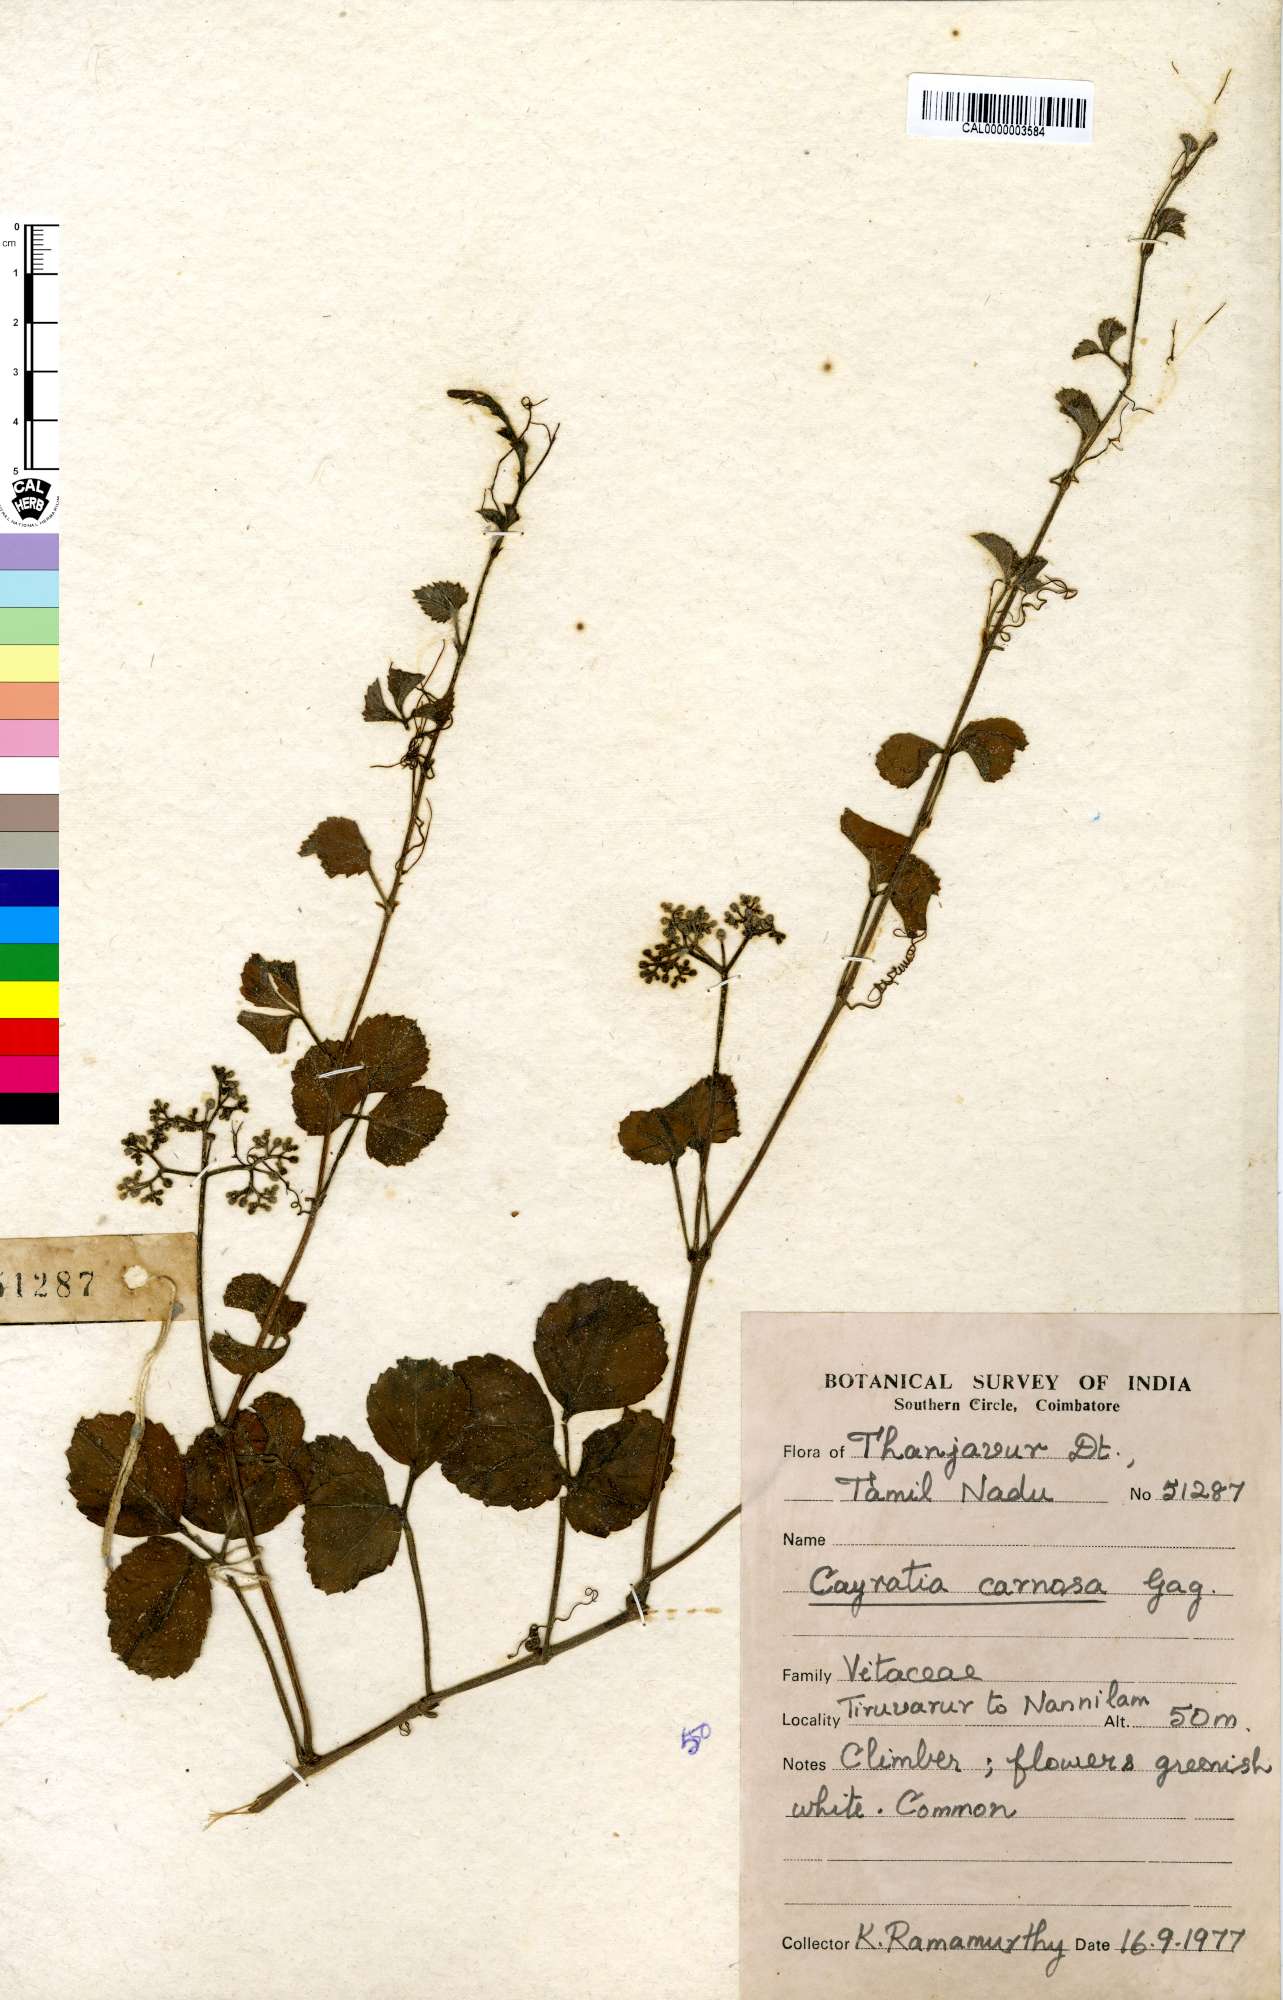 CAL0000003584
0
cm
1
2
3
4
5
CAL
HERB
51287
BOTANICAL SURVEY OF INDIA
Southern Circle, Coimbatore
Flora of Thanjavur Dt.,
Tamil Nadu No 51287
Name
Cayratia carnosa Gag.
Family Vitaceae
Locality Tiruvarur to Nannilam Alt. 50m.
Notes Climber; flowers greenish
white. Common
Collector K. Ramamurthy Date 16.9.1977
50